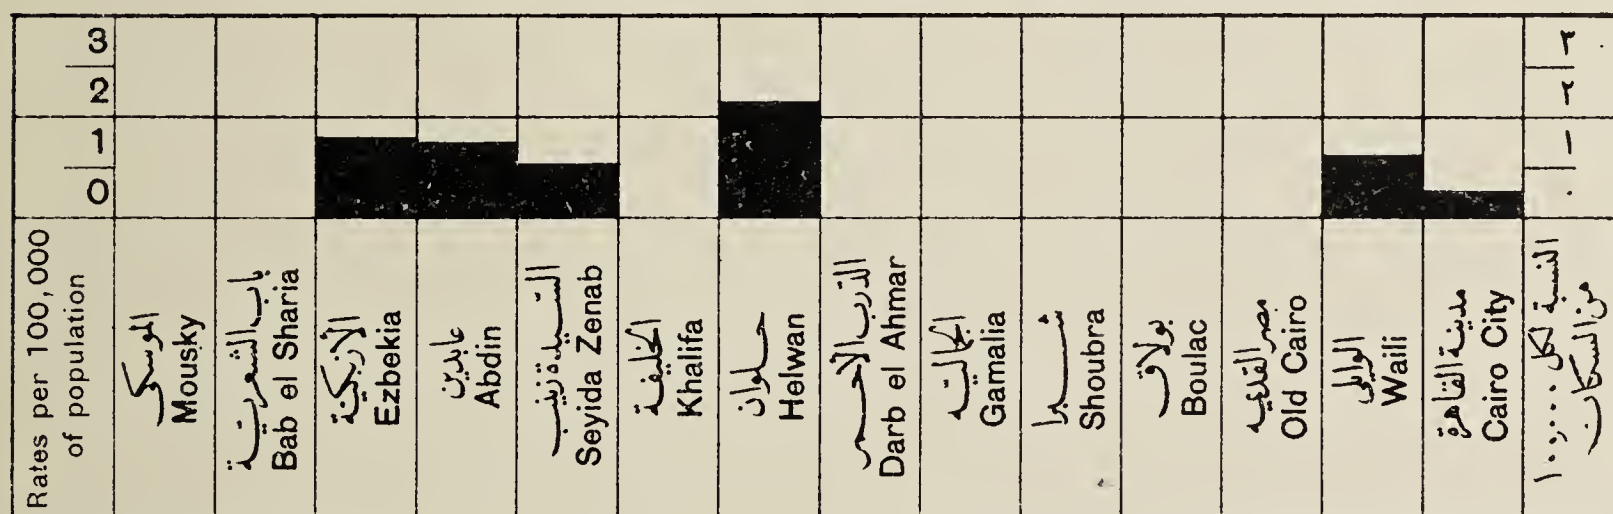 3
2
1
0
٣
٢
١
٠
Rates per 100,000
of population
الموسكى
Mousky
باب الشعريـة
Bab el Sharia
الأزبكية
Ezbekia
عابدين
Abdin
السـيدة زينب
Seyida Zenab
الخليفـة
Khalifa
حـلوان
Helwan
الدرب الأحـمر
Darb el Ahmar
الجماليـه
Gamalia
شـبرا
Shoubra
بولاق
Boulac
مصر القديمه
Old Cairo
الوايلى
Waili
مدينة القاهرة
Cairo City
النسبة لكل ١٠٠,٠٠٠
من السكان